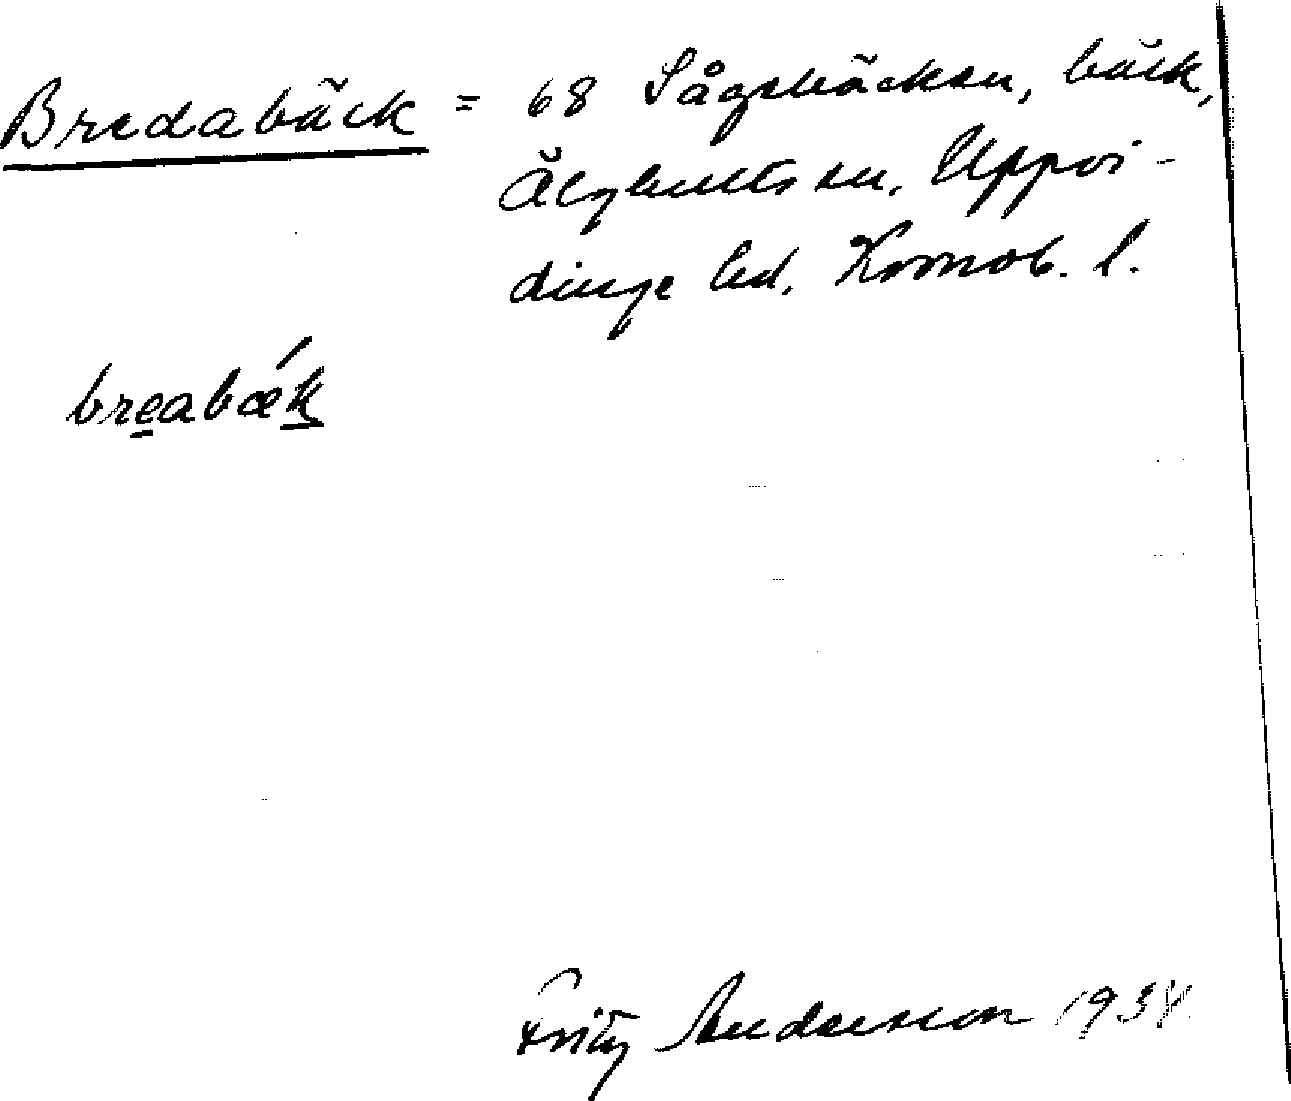 Bredabäck = 68 Sågebäcken, bäck,
Älghults sn, Uppvi-
dinge hd, Kronob. l.
breabǽk
Fritz Andersson 1934